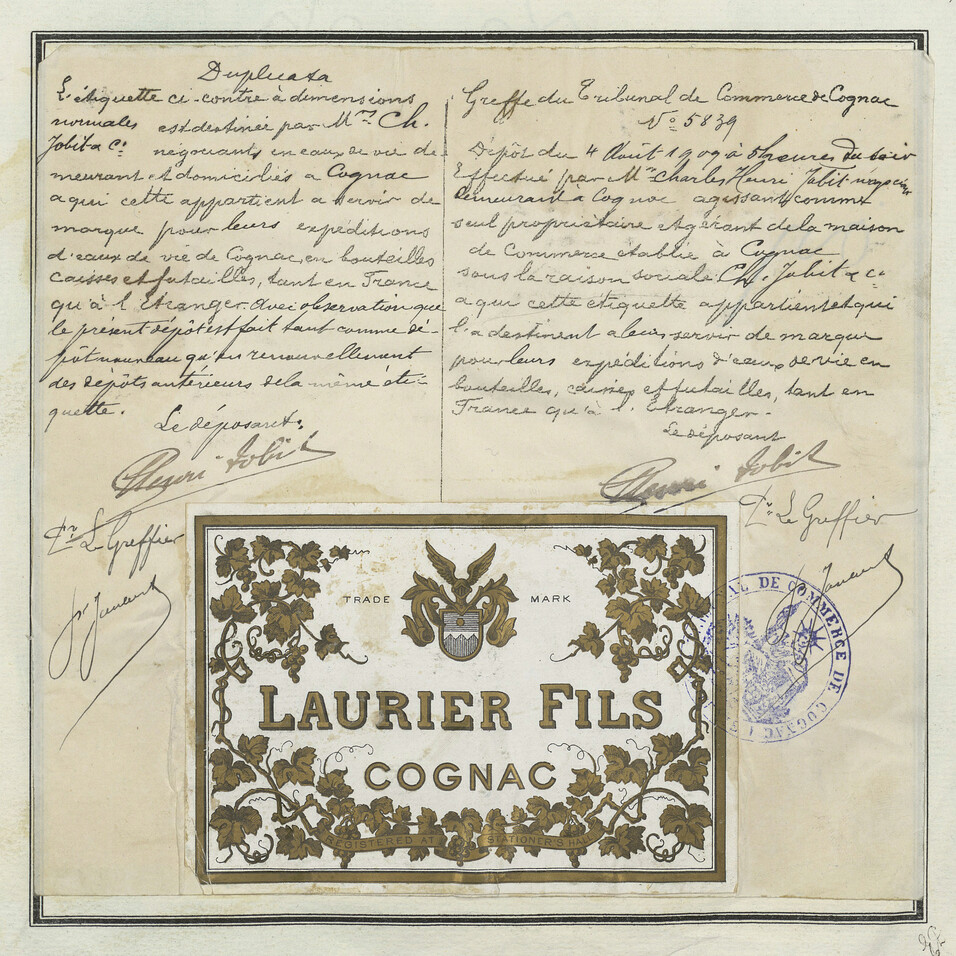 Duplicata
L'étiquette ci-contre à dimensions
normales est destinée par Mrs Ch.
Jobit & Co négociants en eaux de vie de
meurant et domiciliés a Cognac
a qui cette appartient a servir de
marque pour leurs expéditions
d'eaux de vie de Cognac, en bouteilles
caisses et futailles, tant en France
qu'à l'Etranger. Avec observation que
le présent dépôt est fait tant comme dé-
pôt nouveau qu'en renouvellement
des dépôts antérieurs de la même éti-
quette.
Le déposant:
Henri Jobit
Pr Le Greffier
Greffe du Tribunal de Commerce de Cognac
No 5839
Dépôt du 4 Août 1909 à 5 heures du soir
Effectué par Mr Charles Henri Jobit négociant
demeurant à Cognac agissant comme
seul propriétaire et gérant de la maison
de Commerce établie à Cognac
sous la raison sociale Ch. Jobit & Co
a qui cette étiquette appartient et qui
l'a destinent a leur servir de marque
pour leurs expéditions d'eaux de vie en
bouteilles, caisses et futailles, tant en
France qu'à l'Etranger.
Le déposant
Henri Jobit
Pr Le Greffier
TRADE MARK
LAURIER FILS
COGNAC
REGISTERED AT STATIONER'S HALL
DE COMMERCE DE COGNAC